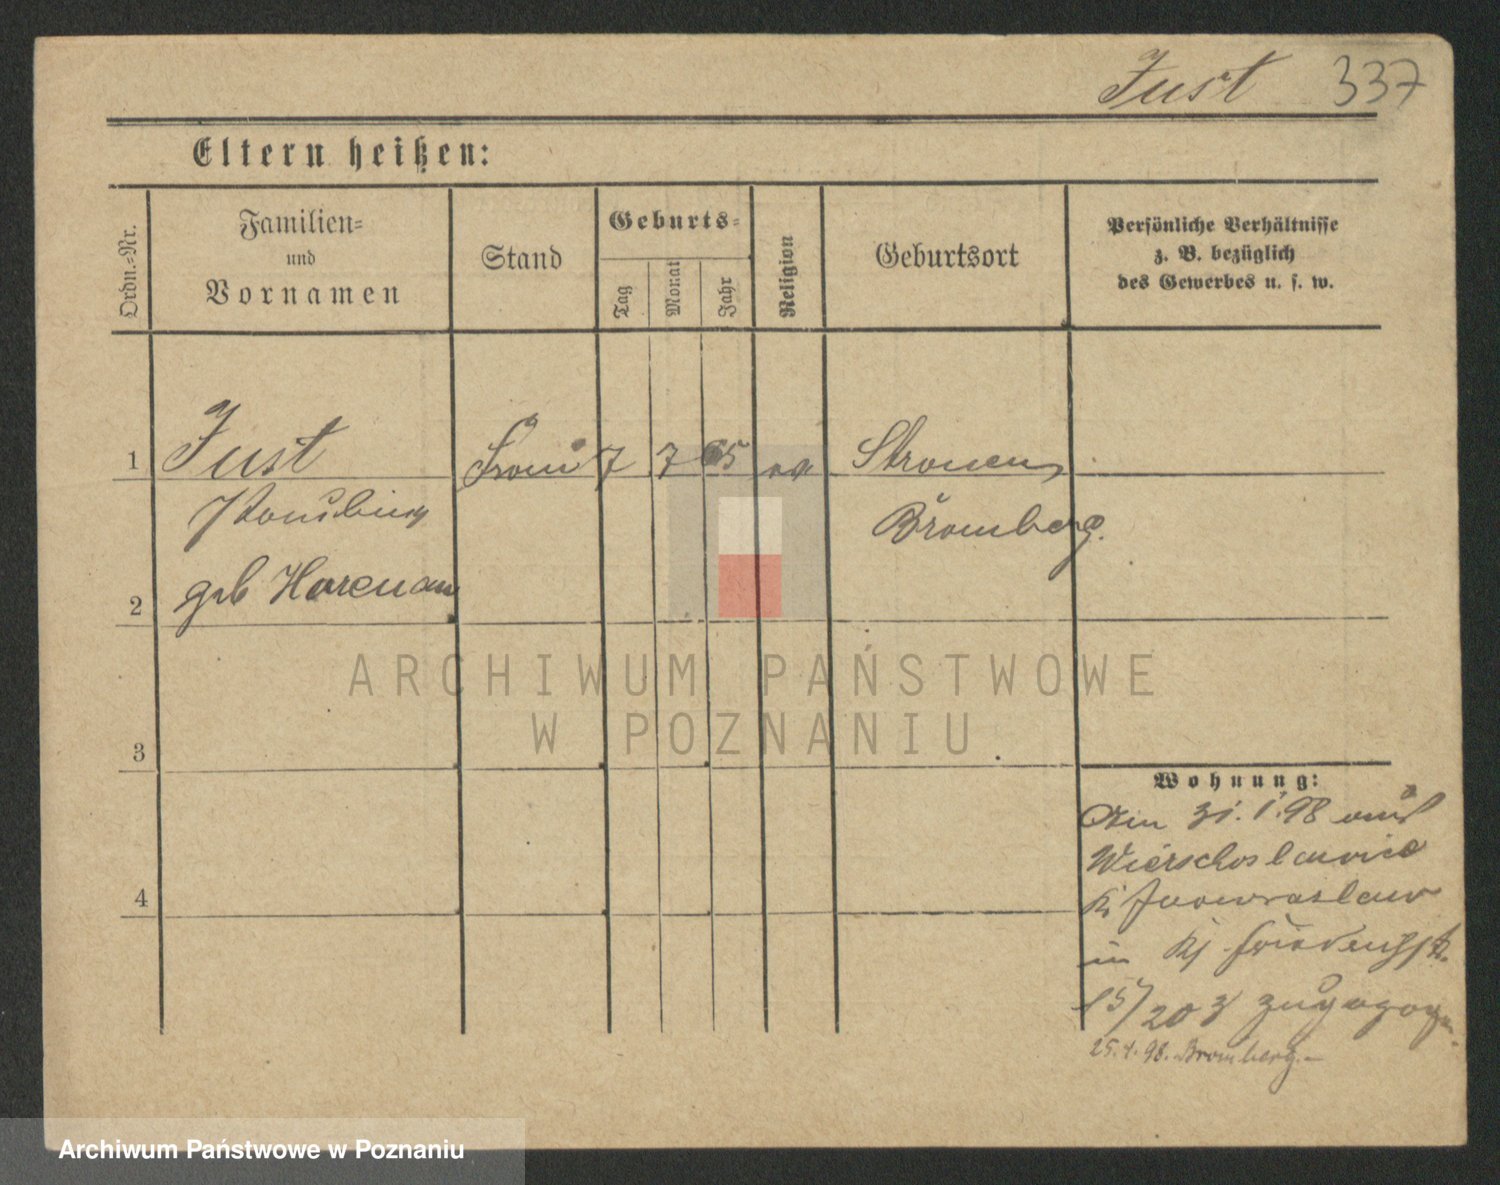 Just 337
Eltern heißen:
Ordn.-Nr.
Familien-
und
Vornamen
Stand
Geburts-
Tag
Monat
Jahr
Religion
Geburtsort
Persönliche Verhältnisse
z. B. bezüglich
des Gewerbes u. s. w.
1 Just 7 7 65
Bromberg.
geb
2
3
4
Wohnung:
Am 31.1.98 aus
in
15/20 3 zugezogen.
25.4.98. Bromberg.-
ARCHIWUM PAŃSTWOWE
W POZNANIU
Archiwum Państwowe w Poznaniu